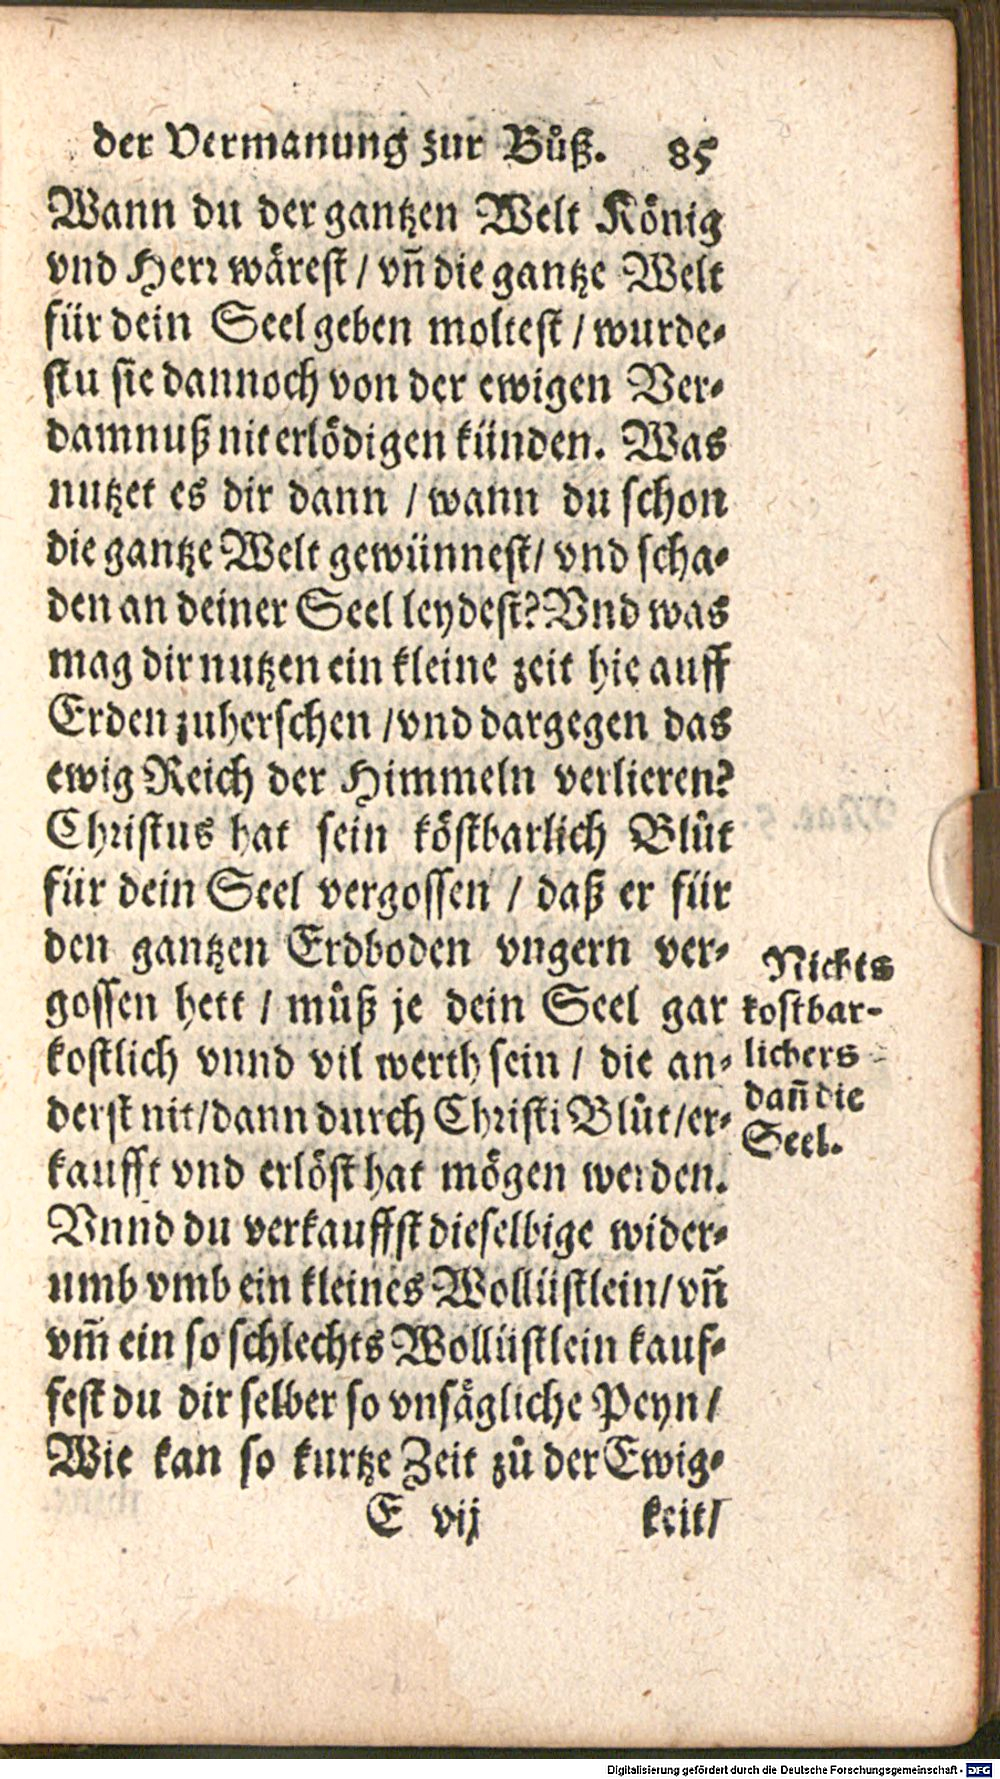 der Vermanung zur Bůß. 85
Wann du der gantzen Welt König
vnd Herr wärest / vñ die gantze Welt
für dein Seel geben woltest / wurde⸗
stu sie dannoch von der ewigen Ver⸗
damnuß nit erlödigen künden. Was
nutzet es dir dann / wann du schon
die gantze Welt gewünnest / vnd scha⸗
den an deiner Seel leydest? Vnd was
mag dir nutzen ein kleine zeit hie auff
Erden zuherschen / vnd dargegen das
ewig Reich der Himmeln verlieren?
Christus hat sein köstbarlich Blůt
für dein Seel vergossen / daß er für
den gantzen Erdboden vngern ver⸗
gossen hett / můß je dein Seel gar
kostlich vnnd vil werth sein / die an⸗
derst nit / dann durch Christi Blůt / er⸗
kaufft vnd erlöst hat mögen werden.
Vnnd du verkauffst dieselbige wider⸗
umb vmb ein kleines Wollüstlein / vñ
vm̃ ein so schlechts Wollüstlein kauf⸗
fest du dir selber so vnsägliche Peyn /
Wie kan so kurtze Zeit zů der Ewig⸗
E vij keit /
Nichts
kostbar-
lichers
dañ die
Seel.
Digitalisierung gefördert durch die Deutsche Forschungsgemeinschaft - DFG